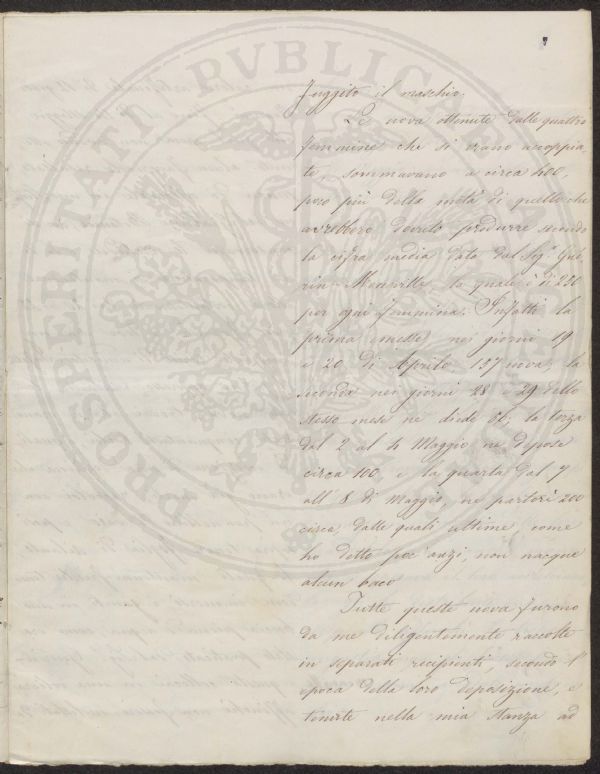 7
fuggito il maschio.
Le uova ottenute dalle quattro
femmine che si erano accoppia-
te, sommavano a circa 400,
poco più della metà di quelle che
avrebbero dovuto produrre secondo
la cifra media data dal Sig.r Gué-
rin-Menville la quale è di 250
per ogni femmina. Infatti la
prima emesse, nei giorni 19
e 20 di Aprile 137 uova, la
seconda nei giorni 28 e 29 dello
stesso mese ne diede 86, la terza
dal 2 al 4 Maggio ne depose
circa 100 e la quarta dal 7
all' 8 di Maggio, ne partorì 200
circa, dalle quali ultime, come
ho detto poc'anzi, non nacque
alcun baco
Tutte queste uova furono
da me diligentemente raccolte
in separati recipienti, secondo l'
epoca della loro deposizione, e
tenute nella mia stanza ad
PROSPERITATI PVBLICAE